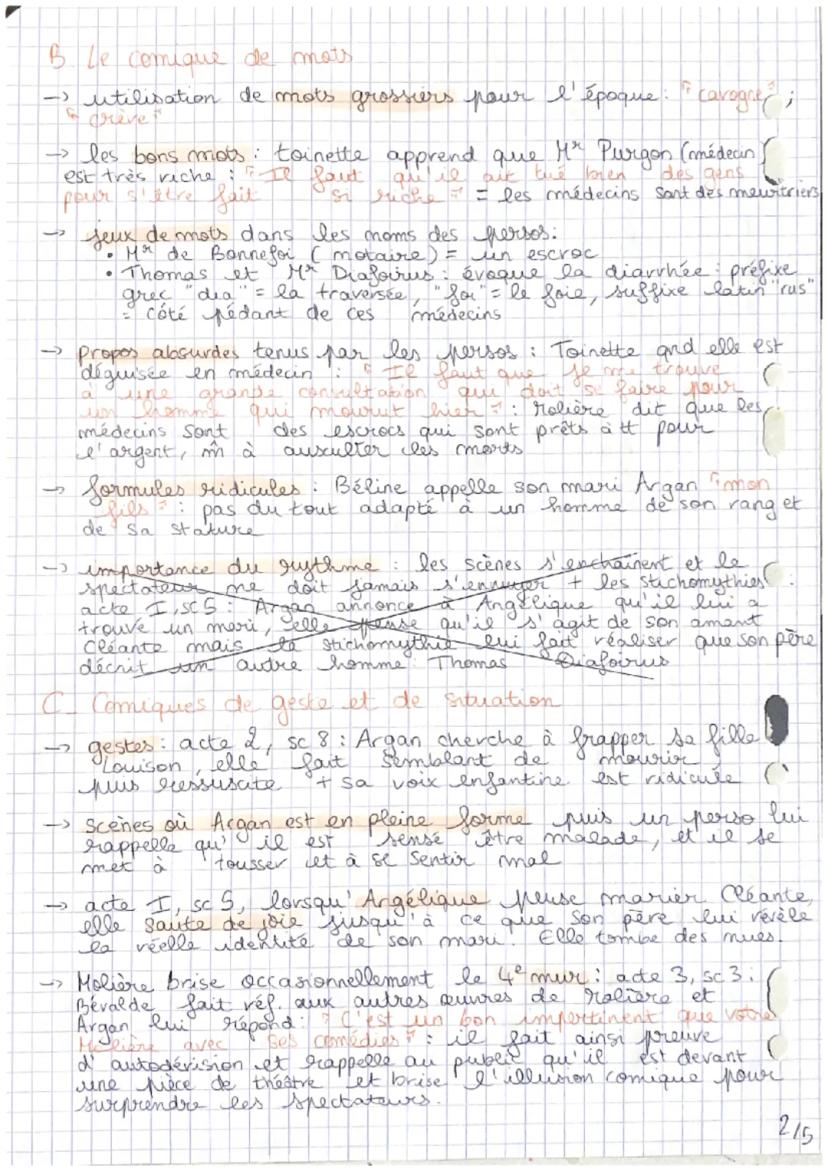 B. Le comique de mots
-> utilisation de mots grossiers pour l'époque: "carogne";
"crève"
-> les bons mots: toinette apprend que Mr Purgon (médecin)
est très riche: "Il faut qu'il ait tué bien des gens
pour s'être fait si riche" = les médecins sont des meurtriers
-> jeux de mots dans les noms des persos:
• Mr de Bonnefoi (notaire) = un escroc
• Thomas et Mr Diafoirus: évoque la diarrhée: préfixe
grec "dia" = la traversée, "foi" = le foie, suffixe latin "rus"
= côté pédant de ces médecins
-> propos absurdes tenus par les persos: Toinette qnd elle est
déguisée en médecin: "Il faut que je me trouve
à une grande consultation qui doit se faire pour
un homme qui mourut hier": Molière dit que les
médecins sont des escrocs qui sont prêts à tt pour
l'argent, m̂ à ausculter les morts
-> formules ridicules: Béline appelle son mari Argan "mon
fils": pas du tout adapté à un homme de son rang et
de sa stature
-> importance du rythme: les scènes s'enchaînent et le
spectateur ne doit jamais s'ennuyer + les stichomythies:
acte I, sc 5: Argan annonce à Angélique qu'il lui a
trouvé un mari, elle pense qu'il s'agit de son amant
Cléante mais la stichomythie lui fait réaliser que son père
décrit un autre homme: Thomas Diafoirus
C_ Comiques de geste et de situation
-> gestes: acte 2, sc 8: Argan cherche à frapper sa fille
Louison, elle fait semblant de mourir
puis ressuscite + sa voix enfantine est ridicule
-> scènes où Argan est en pleine forme puis un perso lui
rappelle qu'il est sensé être malade, et il se
met à tousser et à se sentir mal
-> acte I, sc 5, lorsqu'Angélique pense marier Cléante,
elle saute de joie jusqu'à ce que son père lui révèle
la réelle identité de son mari. Elle tombe des nues.
-> Molière brise occasionnellement le 4e mur: acte 3, sc 3:
Béralde fait réf. aux autres œuvres de Molière et
Argan lui répond: "C'est un bon impertinent que votre
Molière avec ses comédies": il fait ainsi preuve
d'autodérision et rappelle au public qu'il est devant
une pièce de théâtre et brise l'illusion comique pour
surprendre les spectateurs.
2/5